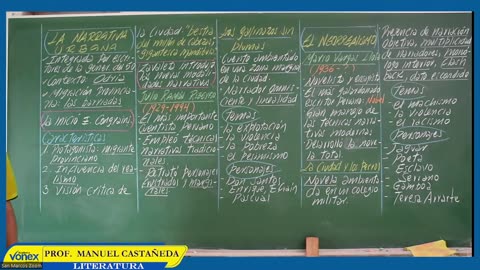 LA NARRATIVA
URBANA
- Integrada por escrito-
res de la gener. del 50
- Contexto: Odría
- Migración Provincia-
na: las barriadas
La inició E. Congrains
Características
1. Protagonista: migrante
Provinciano
2. Influencia del rea-
lismo
3. Visión crítica de
la ciudad "bestia
del millón de cabezas"
- Zavaleta introdujo
las nuevas modali-
dades narrativas
Julio Ramón Ribeyro
(1929-1994)
- El más importante
cuentista Peruano
- Empleó técnicas
narrativas tradicio-
nales
- Retrató Personajes
frustrados y margi-
nales
Los gallinazos sin
Plumas
Cuento ambientado
en una zona marginal
de la ciudad.
- Narrador omnis-
ciente y linealidad
Temas
- la explotación
- la violencia
- la Pobreza
- el Pesimismo
Personajes
- Don Santos
- Enrique, Efraín
- Pascual
EL NEORREALISMO
Mario Vargas Llosa
1936 -
- Novelista y ensayista
- El más galardonado
escritor Peruano: Nobel
- Gran manejo de
las técnicas narrati-
vas modernas
- Desarrolla la nove-
la total
La ciudad y los Perros
- Novela ambienta-
da en un colegio
militar.
Presencia de narración
objetiva, multiplicidad
de narradores, monó-
logo interior, flash
back, dato escondido
Temas
- el machismo
- la violencia
- el racismo
Personajes
- Jaguar
- Poeta
- Esclavo
- Serrano
- Gamboa
- Teresa Arrarte
VONEX
San Marcos Zoom
PROF. MANUEL CASTAÑEDA
LITERATURA